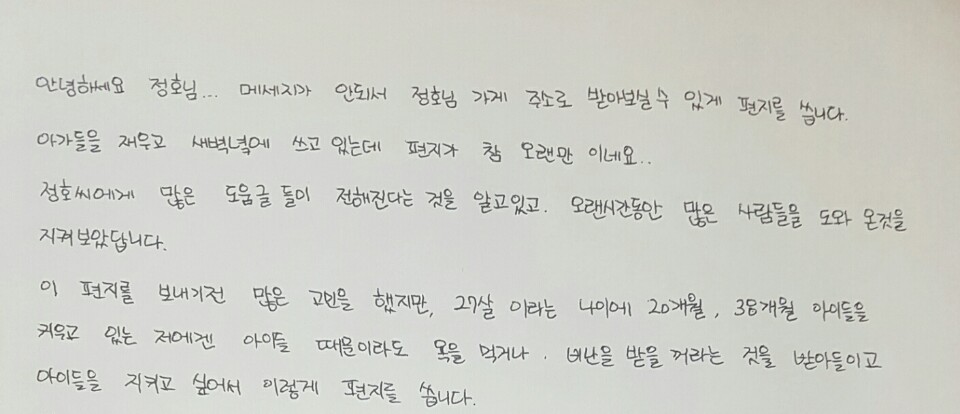 안녕하세요 정호님... 메세지가 안되서 정호님 가게 주소로 받아보실 수 있게 편지를 씁니다.
아가들을 재우고 새벽녘에 쓰고 있는데 편지가 참 오랜만 이네요..
정호씨에게 많은 도움글 들이 전해진다는 것을 알고있고. 오랜시간동안 많은 사람들을 도와 온것을
지켜보았답니다.
이 편지를 보내기전 많은 고민을 했지만, 27살 이라는 나이에 20개월, 38개월 아이들을
키우고 있는 저에겐 아이들 때문이라도 욕을 먹거나. 비난을 받을 꺼라는 것을 받아들이고
아이들을 지키고 싶어서 이렇게 편지를 씁니다.